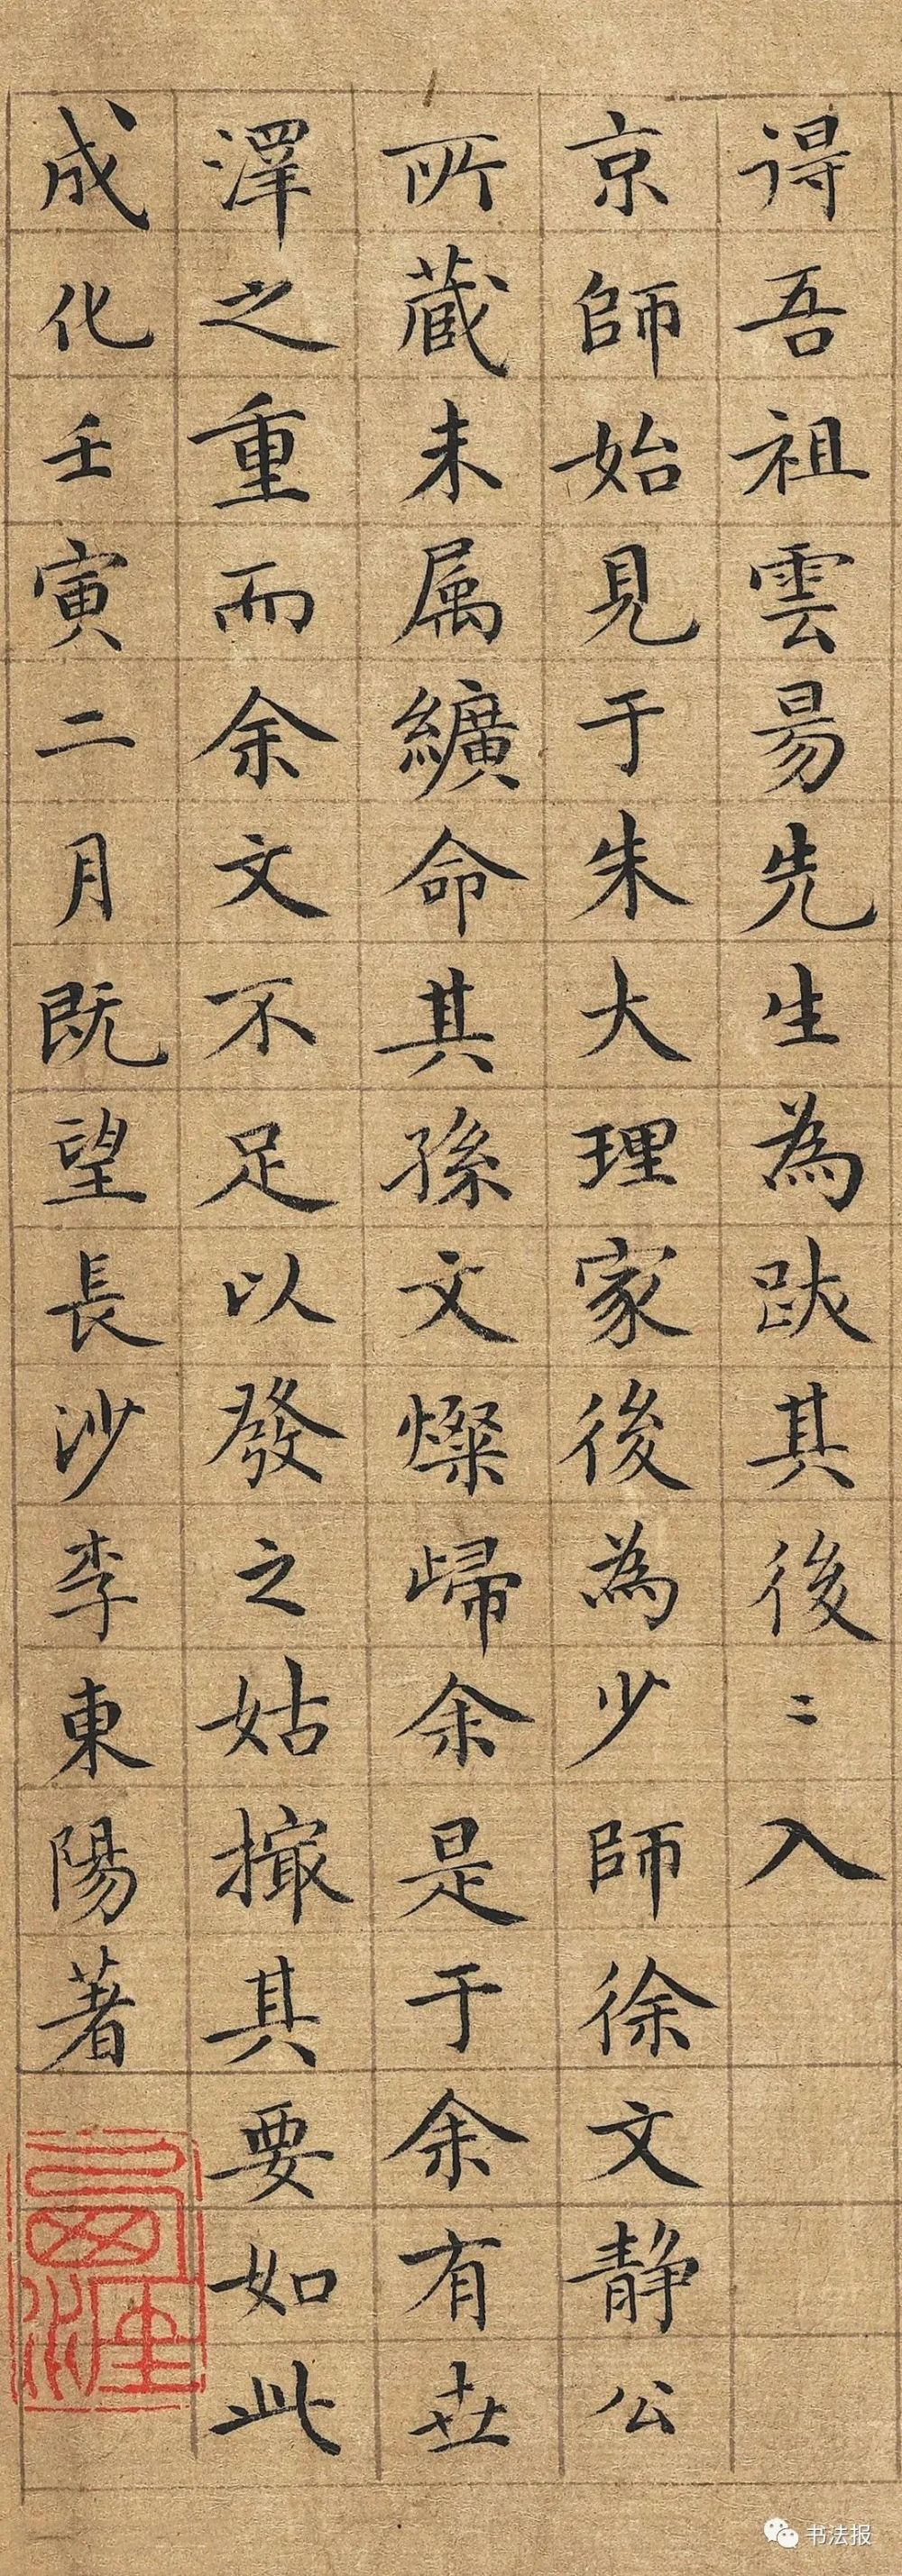 得吾祖雲昜先生為跋其後〻入
京師始見于朱大理家後為少師徐文静公
所蔵未属纊命其孫文燦歸余是于余有世
澤之重而余文不足以發之姑撮其要如此
成化壬寅二月既望長沙李東陽著
书法报